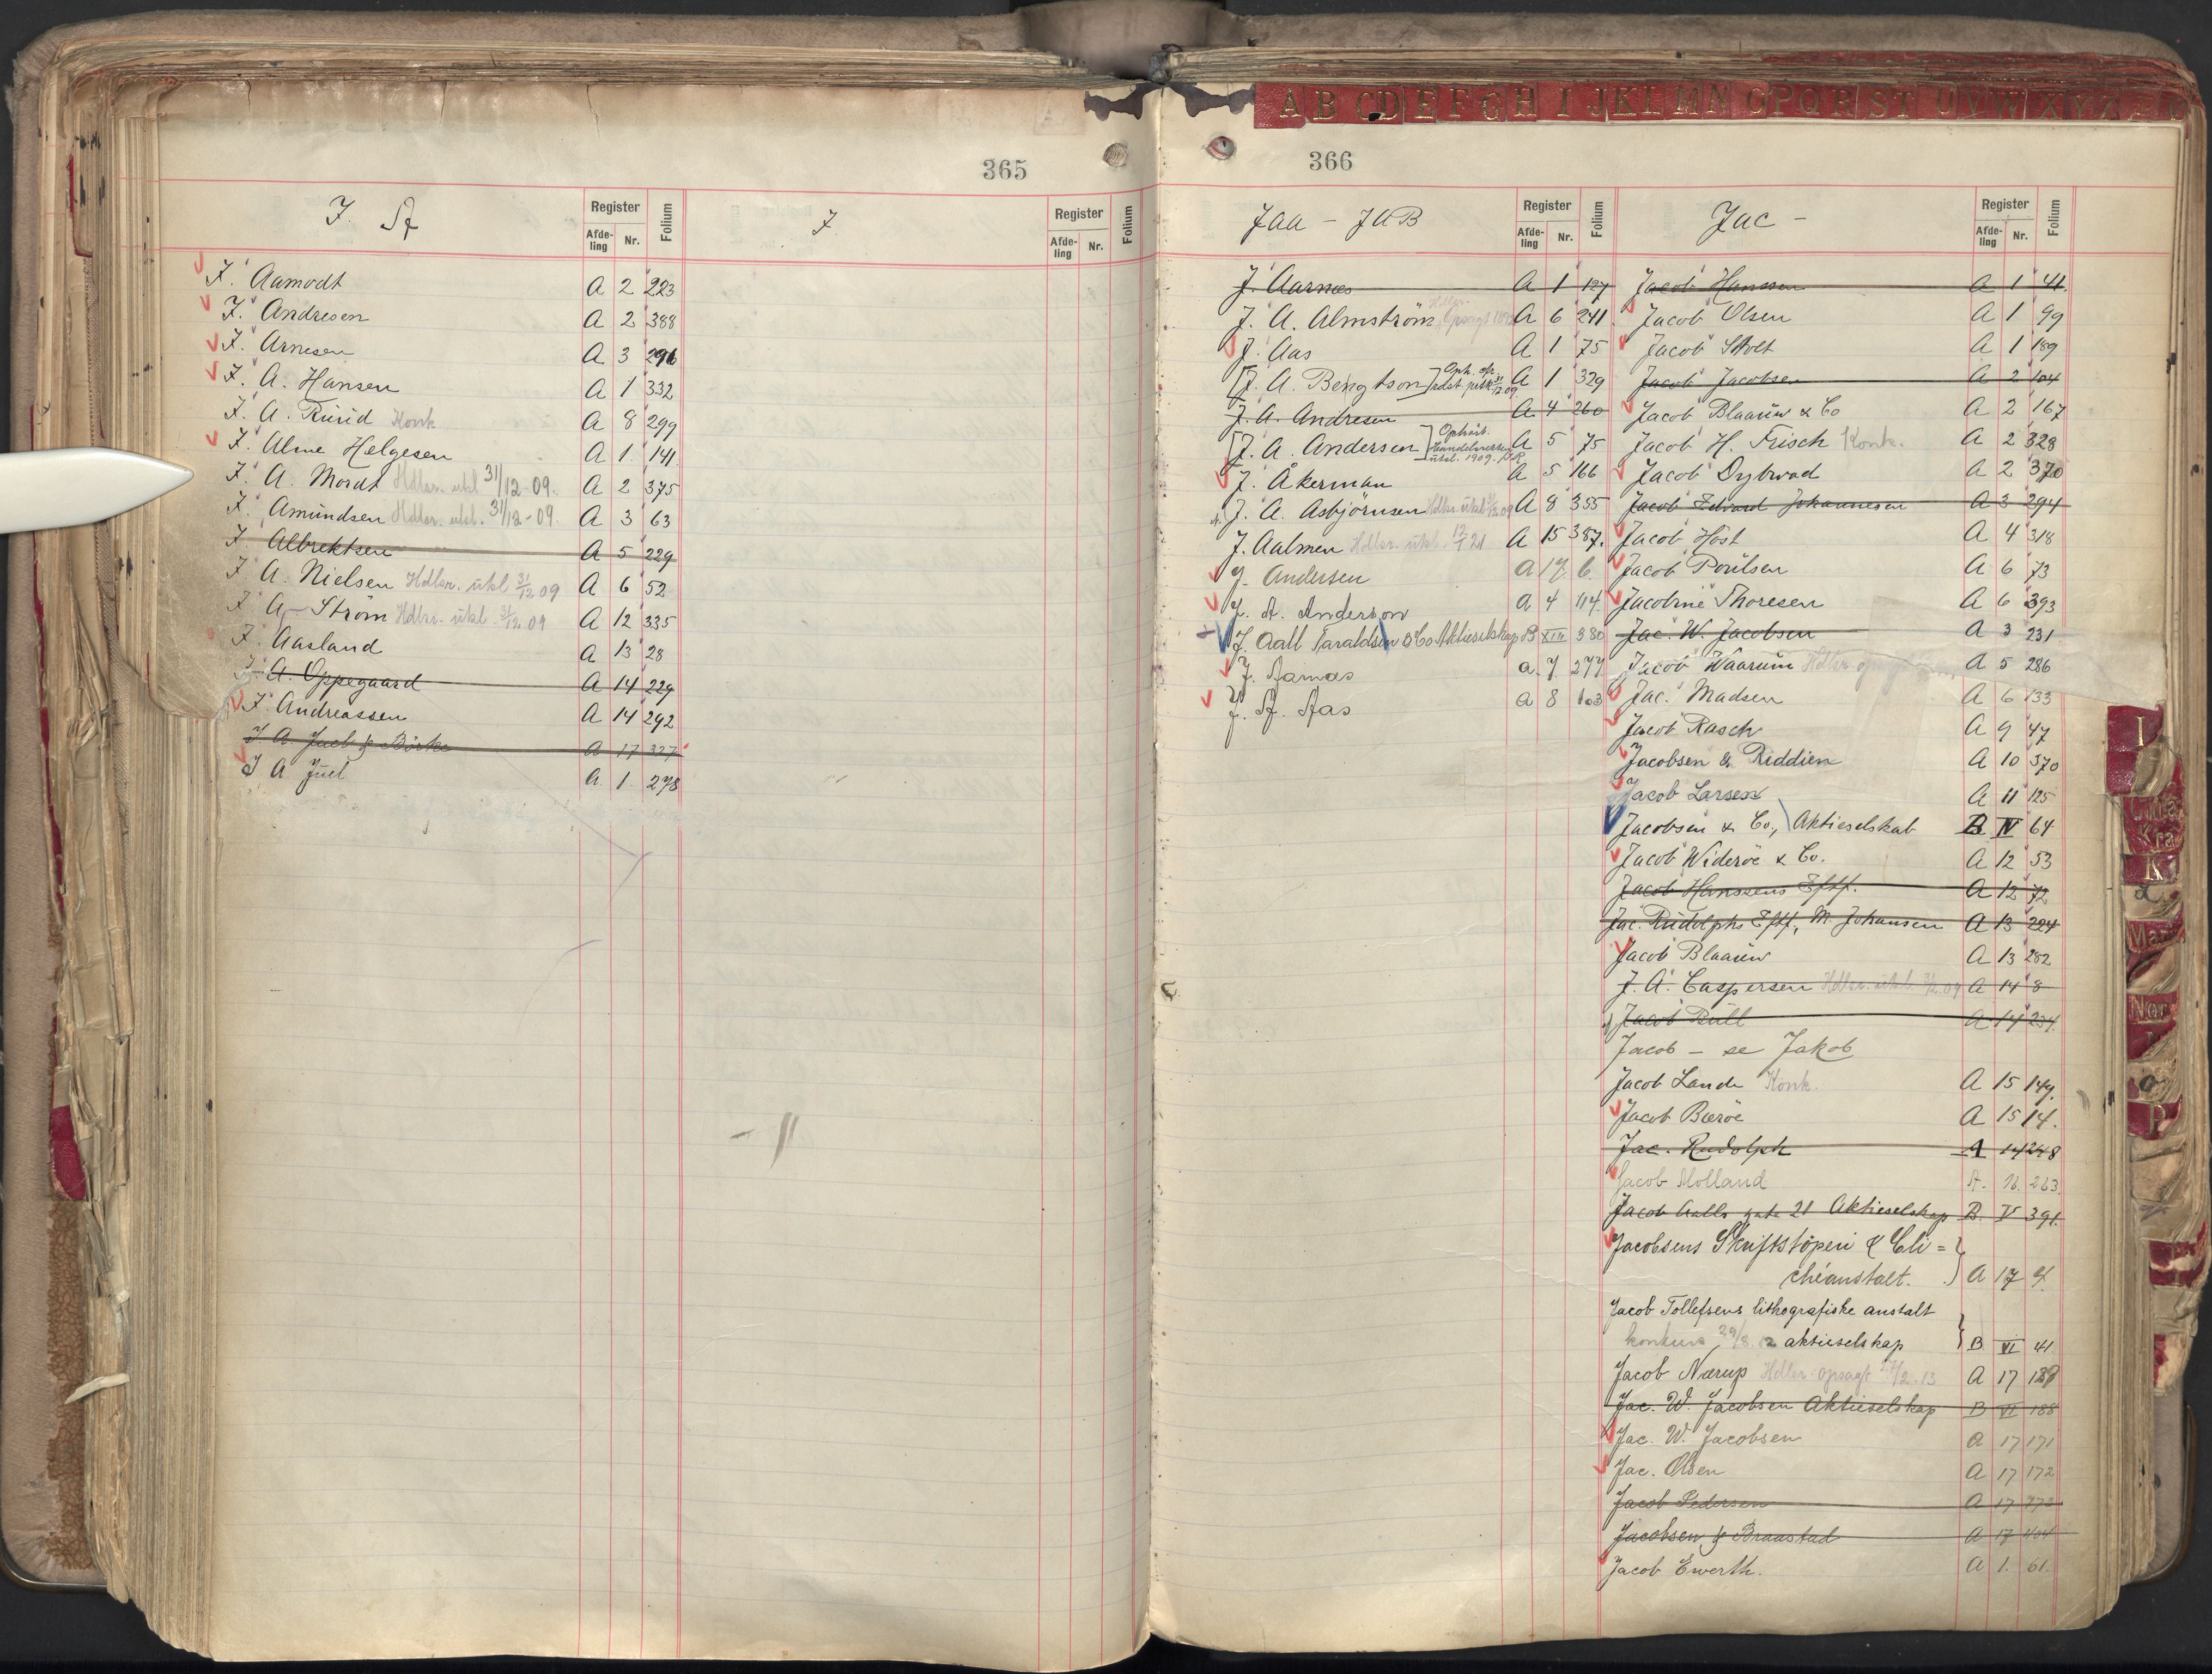 365
I. A
Register
Folium
Afde-
ling
Nr.
I. Aamodt A 2 223
I. Andresen A 2 388
I. Arnesen A 3 296
I. A. Hansen A 1 332
I. A. Ruud Konk A 8 299
I. Alme Helgesen A 1. 141
I. A. Mordt Hdlsr. utl 31/12-09. A 2 375
I. Amundsen Hdlsr. utl. 31/12-09. A 3 63
I. Albrektsen A 5 229
I. A. Nielsen Hdlsr. utl 31/12 09 A 6 52
I. A. Ström Hdlsr. utl. 31/12.09 A 12 335
I. Aasland A 13 28
I. A. Oppegaard A 14 229
I. Andreassen A 14 292
I. A. Juel & Börke A 17 327
I A Juel A. 1. 278
I
Register
Folium
Afde-
ling
Nr.
366
Jaa - JAB
Register
Folium
Afde-
ling
Nr.
J. Aarnæs A 1 127
J. A. Almström Hdlsr. opsagt A 6 241.
J. Aas A 1 75
J. A. Bengtson A 1 329
J. A. Andresen A 4 260
J. A. Andersen Ophørt. Handelsretten utsl. 1909. A 5 75
J. Åkerman A 5 166
J. A. Asbjörnsen Hdlsr. utkl 31/12 09 A 8 355
J. Aalmen Hdlsr. utkl. 12/1 21 A 15 387.
J. Andersen A 17. 6.
J. A. Anderson A 4 114.
J. Aall Taraldsen & Co Aktieselskap B XIII 380
J. Aamas A. 7. 277
J. A. Aas A 8 103
Jac -
Register
Folium
Afde-
ling
Nr.
Jacob Hanssen A 1 41.
Jacob Olsen A 1 99
Jacob Stolt A 1 189
Jacob Jacobsen A 2 104
Jacob Blaauw & Co A 2 167
Jacob H. Frisch Konk. A 2 328
Jacob Dybwad A 2 370
Jacob Edvard Johannesen A 3 294
Jacob Höst A 4 318
Jacob Poulsen A 6 73
Jacobine Thoresen A 6 393
Jac. W. Jacobsen A 3 231
Jacob Waarum Hdlsr. A 5 286
Jac. Madsen A 6 133
Jacob Rasch A 9 47
Jacobsen & Reddien A 10 370
Jacob Larsen A 11 125
Jacobsen & Co., Aktieselskab B IV 64
Jacob Wideröe & Co. A 12 53
Jacob Hanssens Eftf. A 12 72
Jac. Rudolphs Eftf., M. Johansen A 13 224
Jacob Blaauw A 13 282
J. A. Caspersen Hdlsr. utkl 31/12.09 A 14 8
Jacob Bull A 14 234.
Jacob - se Jakob
Jacob Lande Konk. A 15 149.
Jacob Bæröe A 15 14.
Jac. Rudolph A 14 248
Jacob Molland A. 16. 263.
Jacob Aalls gate 21 Aktieselskap B. V 391.
Jacobsens Skriftstöperi & Cli=
chéanstalt. A 17 4
Jacob Tollefsens lithografiske anstalt
konkurs 29/8.12 aktieselskap B VI 41
Jacob Nærup Hdlsr. opsagt 27/2.13 A 17 139
Jac. W. Jacobsen Aktieselskap B VI 188
Jac. W. Jacobsen A 17 171
Jac. Olsen A 17 172
Jacob Pedersen A 17 373
Jacobsen & Braastad A 17 404
Jacob Ewerth. A 1. 61.
A B C D E F G H I J K L M N O P Q R S T U V W X Y Z
I
K
Nor
P